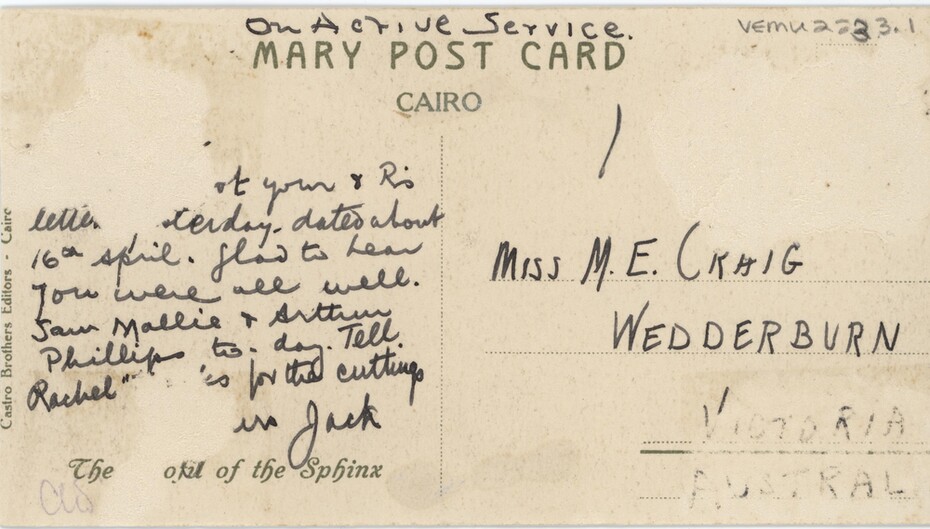 On Active Service.
VEMU2233.1
MARY POST CARD
CAIRO
of your & R's
letter terday. dated about
16th April. Glad to hear
you were all well.
Saw Mollie & Arthur
Phillips to-day. Tell
Rachel for the cuttings
Jack
Miss M. E. Craig
WEDDERBURN
VICTORIA
AUSTRAL
The of the Sphinx
Castro Brothers Editors - Caire